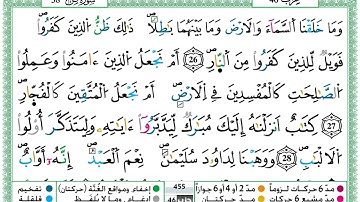 وَمَا خَلَقْنَا ٱلسَّمَآءَ وَٱلْأَرْضَ وَمَا بَيْنَهُمَا بَٰطِلًا ۚ ذَٰلِكَ ظَنُّ ٱلَّذِينَ كَفَرُوا۟ ۚ
فَوَيْلٌ لِّلَّذِينَ كَفَرُوا۟ مِنَ ٱلنَّارِ 26 أَمْ نَجْعَلُ ٱلَّذِينَ ءَامَنُوا۟ وَعَمِلُوا۟
ٱلصَّٰلِحَٰتِ كَٱلْمُفْسِدِينَ فِى ٱلْأَرْضِ أَمْ نَجْعَلُ ٱلْمُتَّقِينَ كَٱلْفُجَّارِ 27
كِتَٰبٌ أَنزَلْنَٰهُ إِلَيْكَ مُبَٰرَكٌ لِّيَدَّبَّرُوٓا۟ ءَايَٰتِهِۦ وَلِيَتَذَكَّرَ أُو۟لُوا۟
ٱلْأَلْبَٰبِ 28 وَوَهَبْنَا لِدَاوُۥدَ سُلَيْمَٰنَ ۚ نِعْمَ ٱلْعَبْدُ ۖ إِنَّهُۥٓ أَوَّابٌ
455
مدّ 6 حركات لزوماً مدّ 2 أو 4 أو 6 جوازاً إخفاء ومواقع الغُنَّة (حركتان) تفخيم
مدّ مشبع 6 حركات مدّ حركتان إدغام ، وما لا يُلفَظ قلقلة